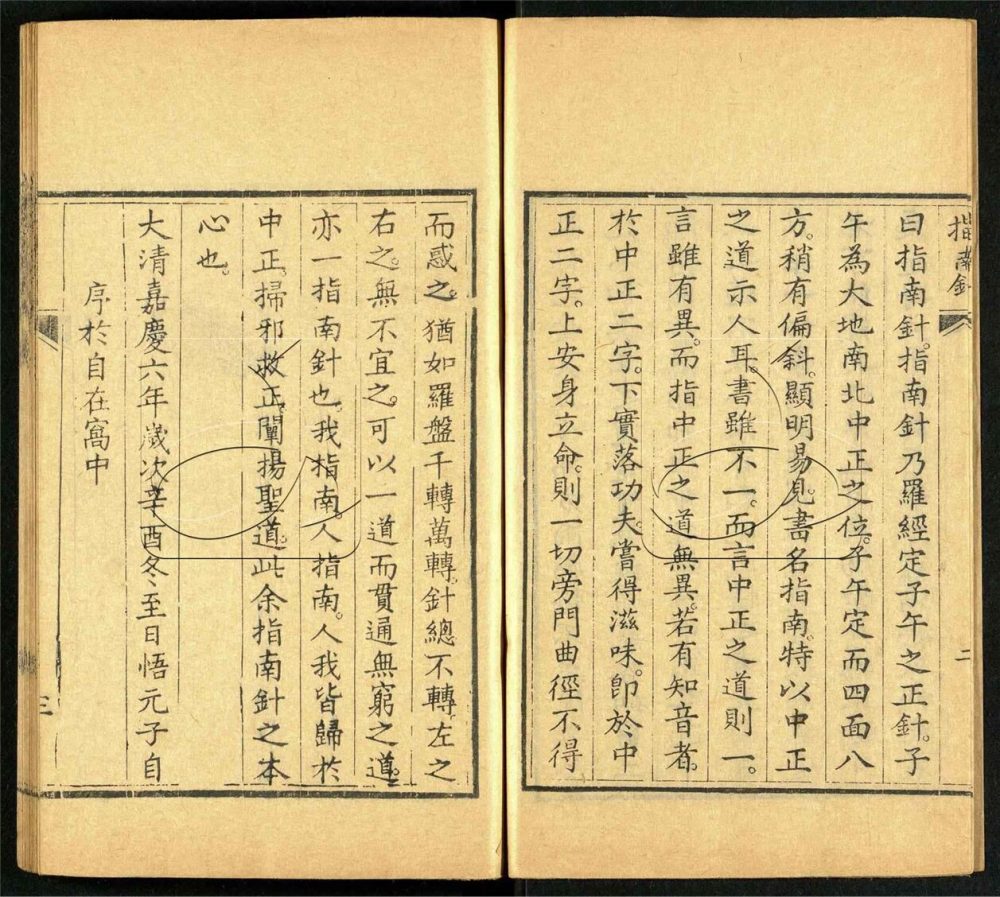 指南針
曰指南針。指南針乃羅經定子午之正針。子
午為大地南北中正之位。子午定而四面八
方。稍有偏斜。顯明易見。書名指南。特以中正
之道示人耳。書雖不一。而言中正之道則一。
言雖有異。而指中正之道無異。若有知音者。
於中正二字。下實落功夫。嘗得滋味。即於中
正二字。上安身立命。則一切旁門曲徑不得
二
而惑之。猶如羅盤千轉萬轉。針總不轉。左之
右之。無不宜之。可以一道而貫通無窮之道。
亦一指南針也。我指南。人指南。人我皆歸於
中正。掃邪救正。闡揚聖道。此余指南針之本
心也。
大清嘉慶六年歲次辛酉冬至日悟元子自
序於自在窩中
三